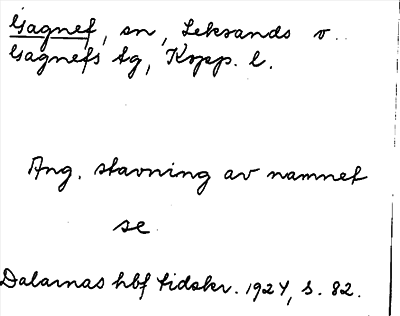 Gagnef, sn, Leksands o.
Gagnefs tg, Kopp. l.
Ang. stavning av namnet
se
Dalarnas hbf tidskr. 1924, s. 82.